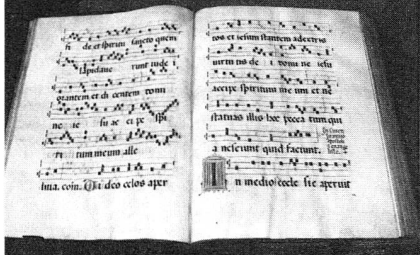 fi de et spiritu sancto quem
lapidave runt iude i
orantem et di centem domi
ne ie su ac ci pe spi
ri tum meum alle
luia. com. Ui deo celos aper
tos et iesum stantem adextris
uirtu tis de i domi ne iesu
accipe spiritum me um et ne
statuas illis hoc pecca tum qui
a nesciunt quid faciunt.
n medio eccle sie aperuit